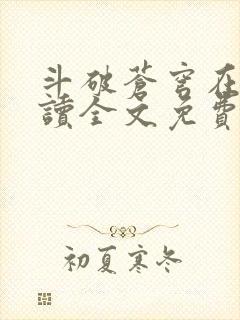 斗破蒼穹在
讀全文免費
初夏寒冬